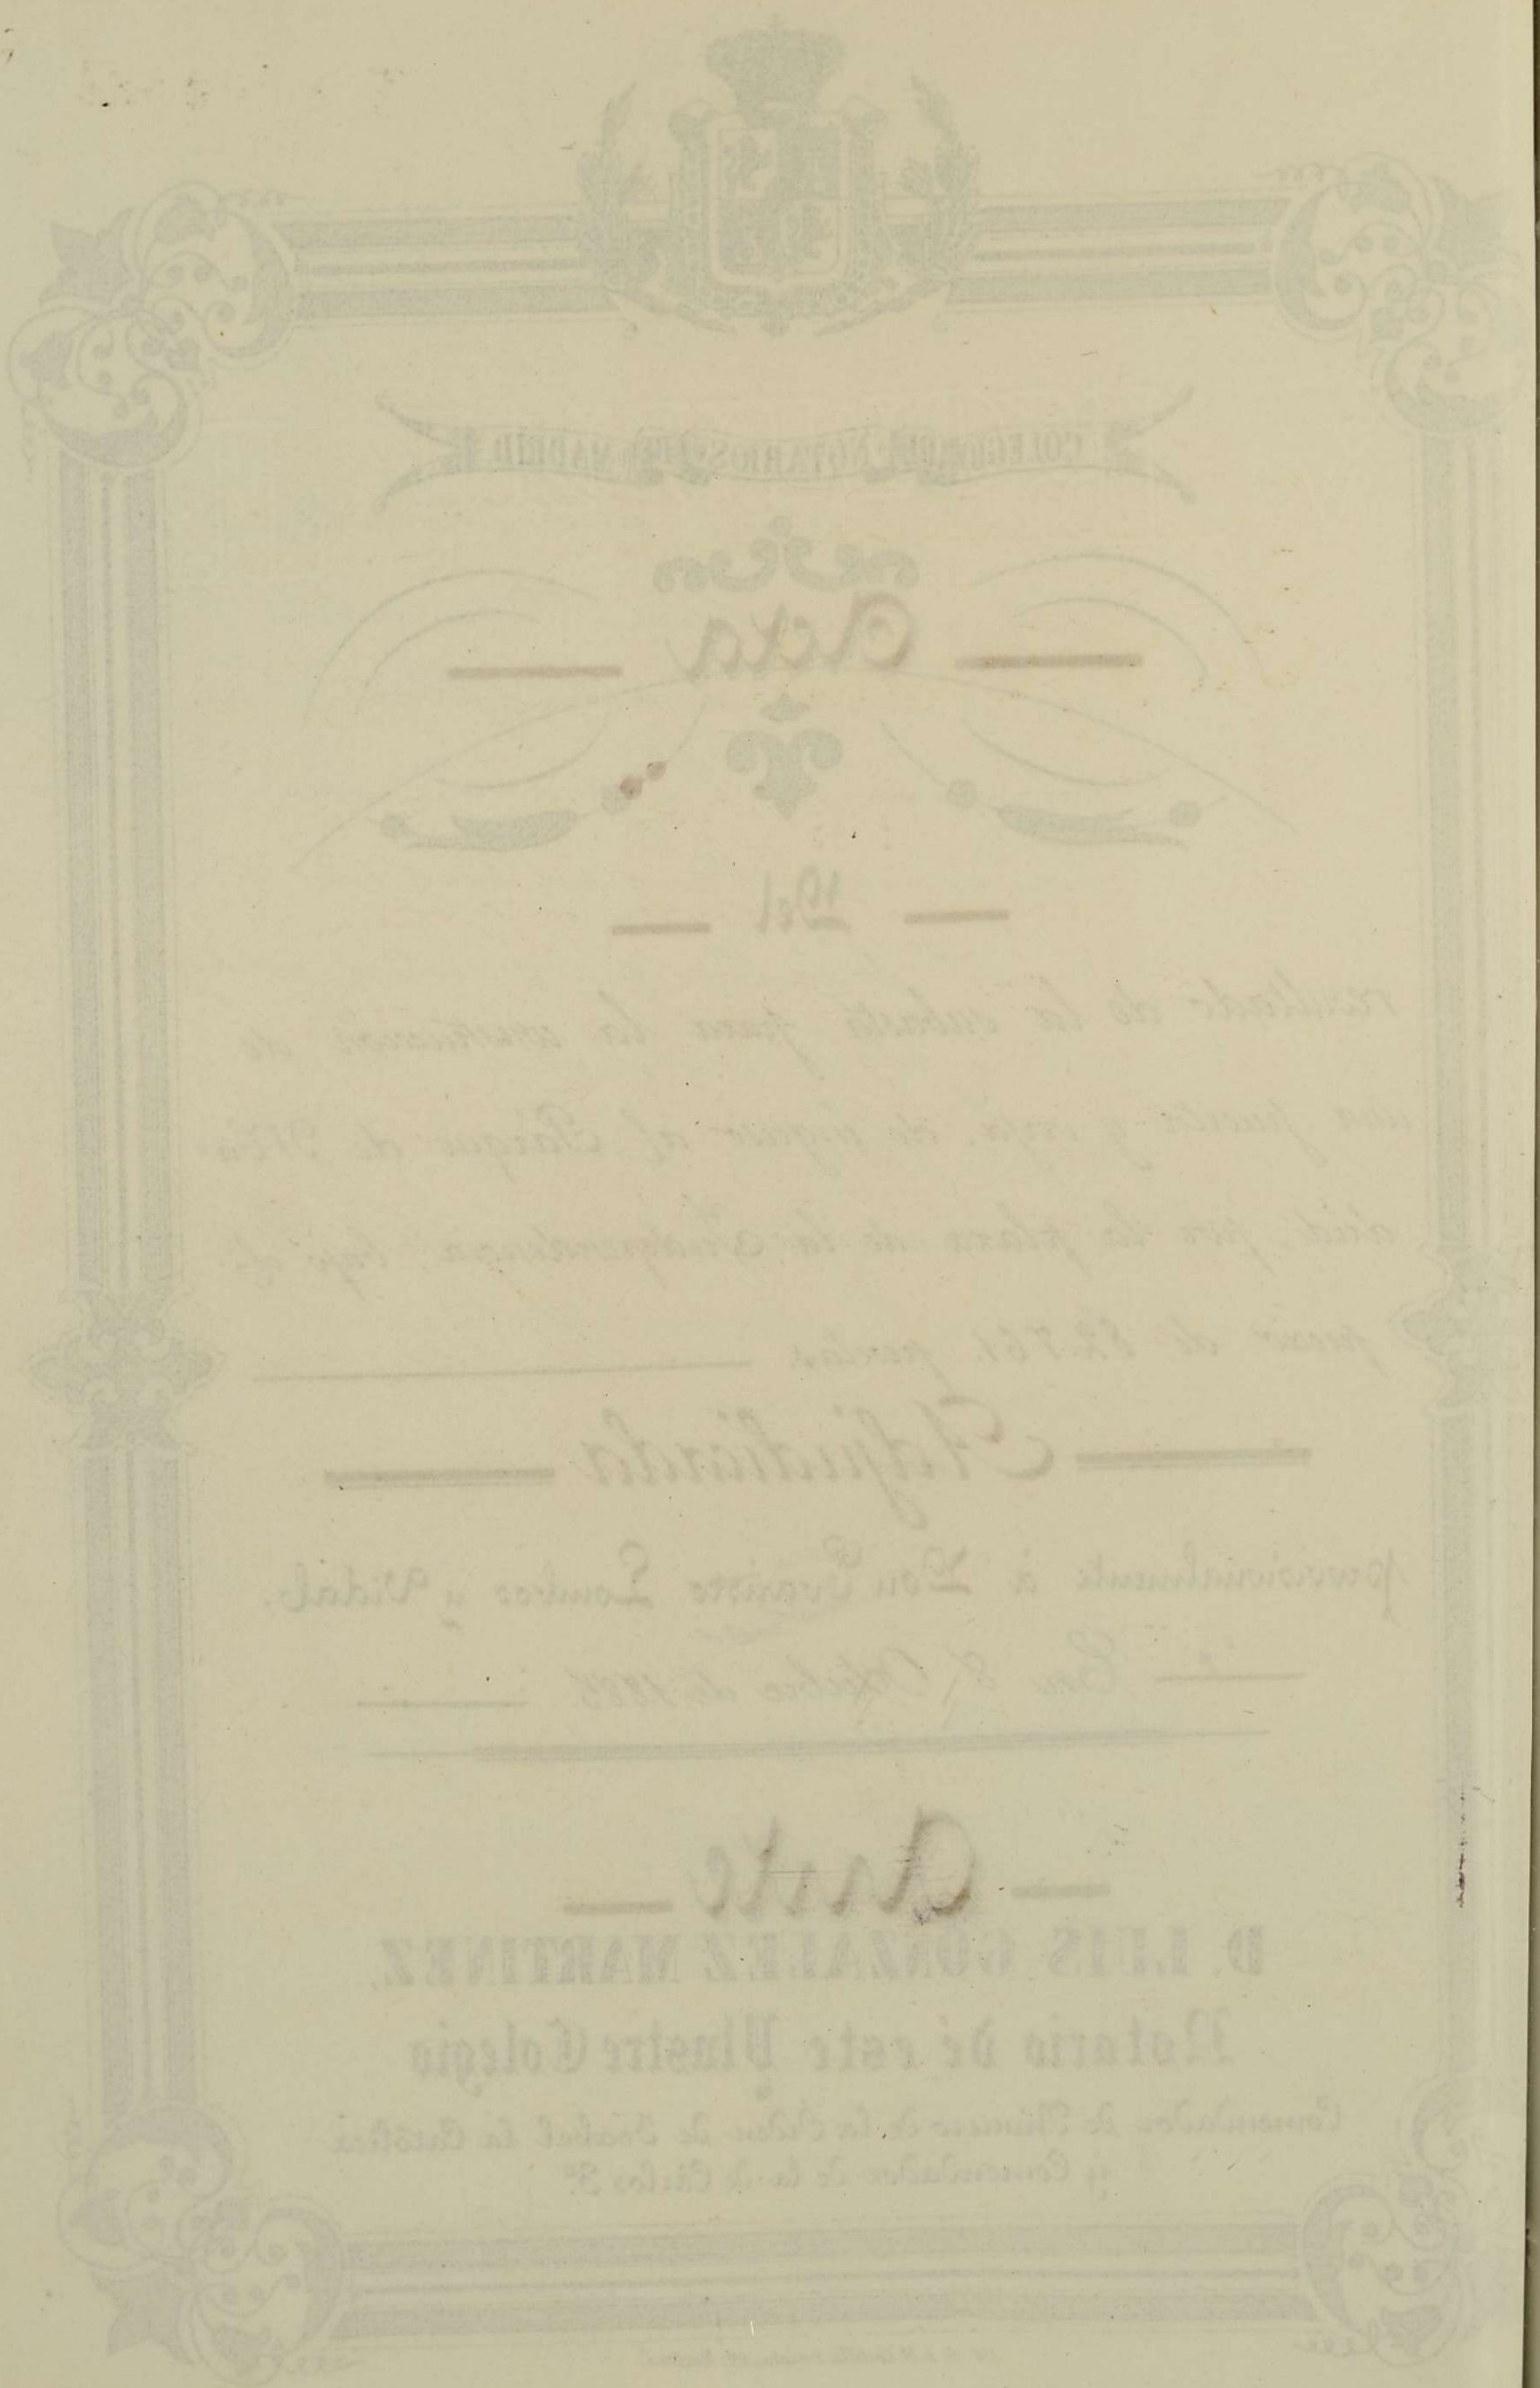 COLEGIO DE NOTARIOS DE MADRID
Acta
Del
resultado de la subasta para la construcción de
una puerta y verja, de ingreso al Parque de Ma-
drid, por la plaza de la Independencia, bajo el
precio de 82.561. pesetas
Adjudicada
provisionalmente à Don Evaristo Lombos y Vidal.
En 8 Octubre de 1885
Ante
D. LUIS GONZALEZ MARTINEZ,
Notario de este Ylustre Colegio
Comendador de Número de la Orden de Isabel la Católica
y Comendador de la de Cárlos 3º.